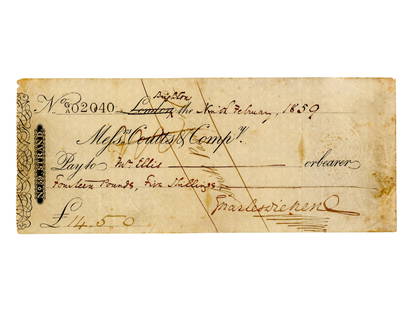 Brighton
No. G/A 02040 London, the Third February, 1859
Messrs. Coutts & Compy.
Pay to Mr Ellis or bearer
Fourteen Pounds, Five Shillings
£ 14.5.0 Charles Dickens
No. 59 STRAND